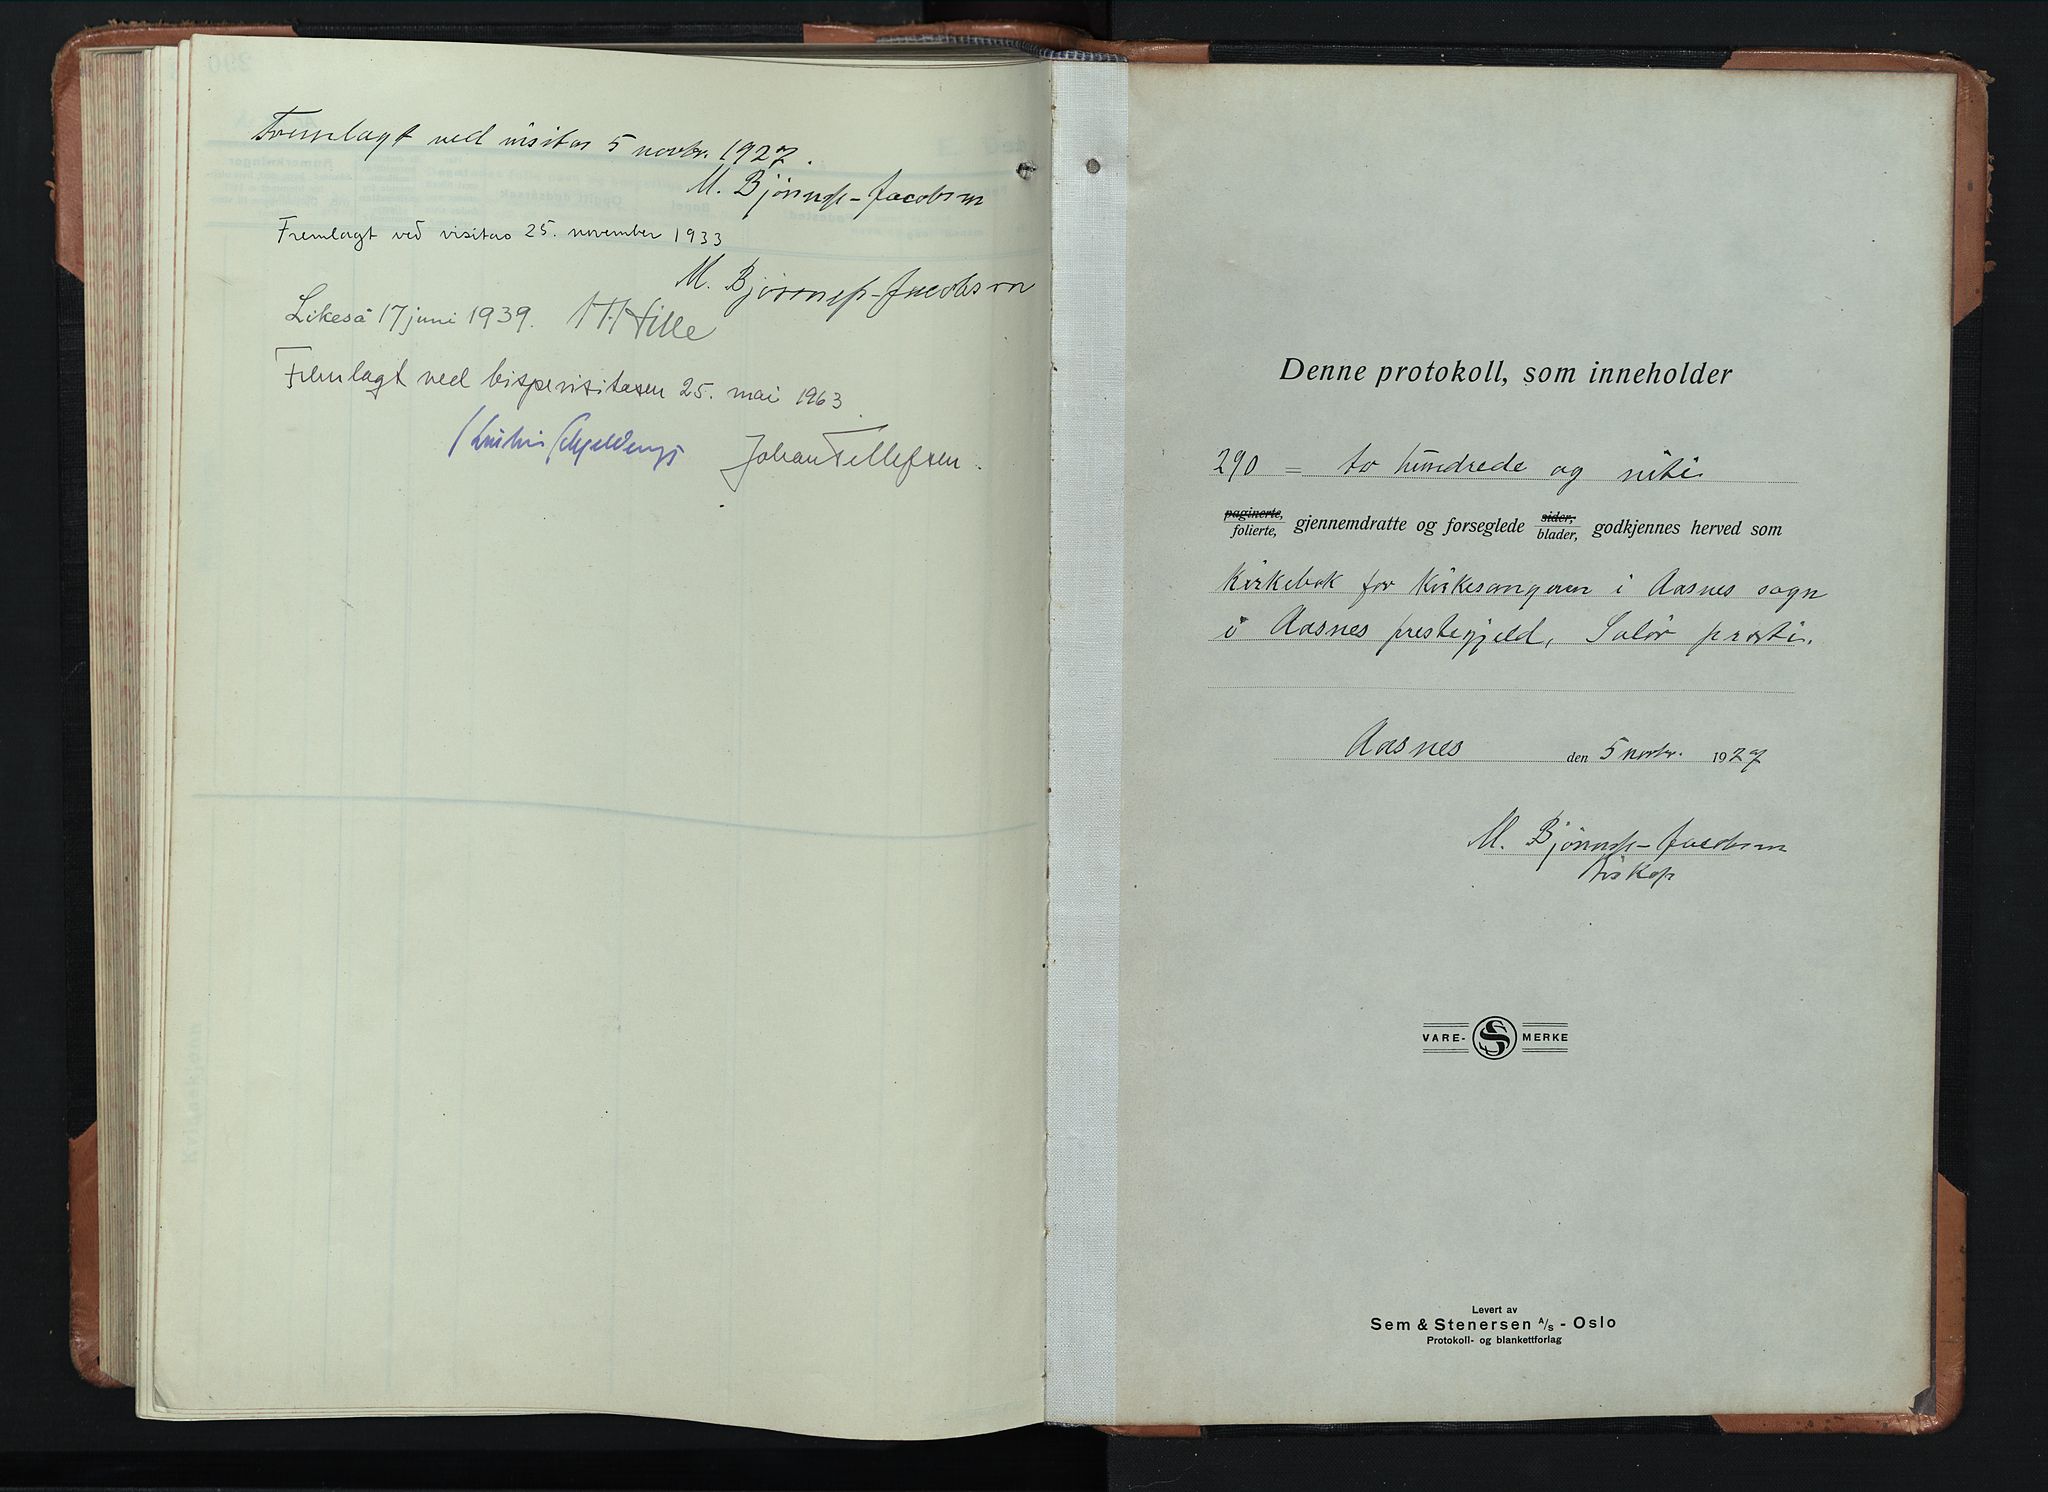 Fremlagt ved visitas 5 novbr. 1927.
M. Bjønnes-Jacobsen
Fremlagt ved visitas 25. november 1933
M. Bjønnes-Jacobsen
Likeså 17 juni 1939. H Hille
Fremlagt ved bispevisitasen 25. mai 1963.
Kristian Schjelderup Johan Tellefsen.
Denne protokoll, som inneholder
290 = to hundrede og nitti
paginerte, sider,
folierte, gjennemdratte og forseglede blader, godkjennes herved som
Kirkebok for Kirkesangeren i Aasnes sogn
i Aasnes prestegjeld, Solør prosti.
Aasnes den 5 novbr. 1927
M. Bjønnes-Jacobsen
biskop
VARE- SS MERKE
Levert av
Sem & Stenersen A/S - Oslo
Protokoll- og blankettforlag